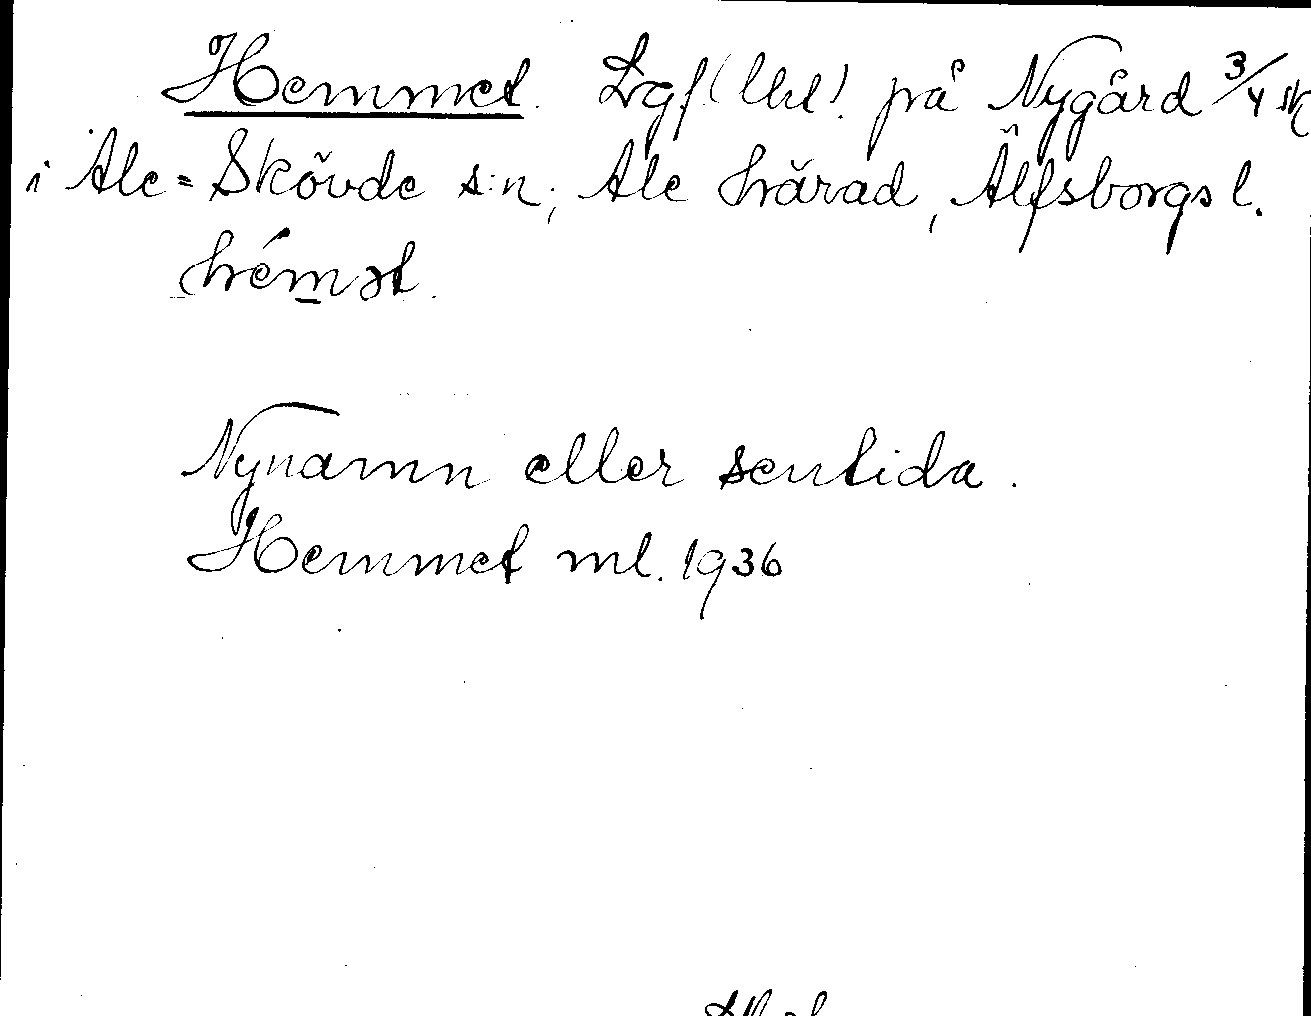 Hemmet. Lgf (lht). på Nygård 3/4 sk
i Ale=Skövde s:n, Ale härad, Älfsborgs l.
hémət.
Nynamn eller sentida.
Hemmet ml. 1936